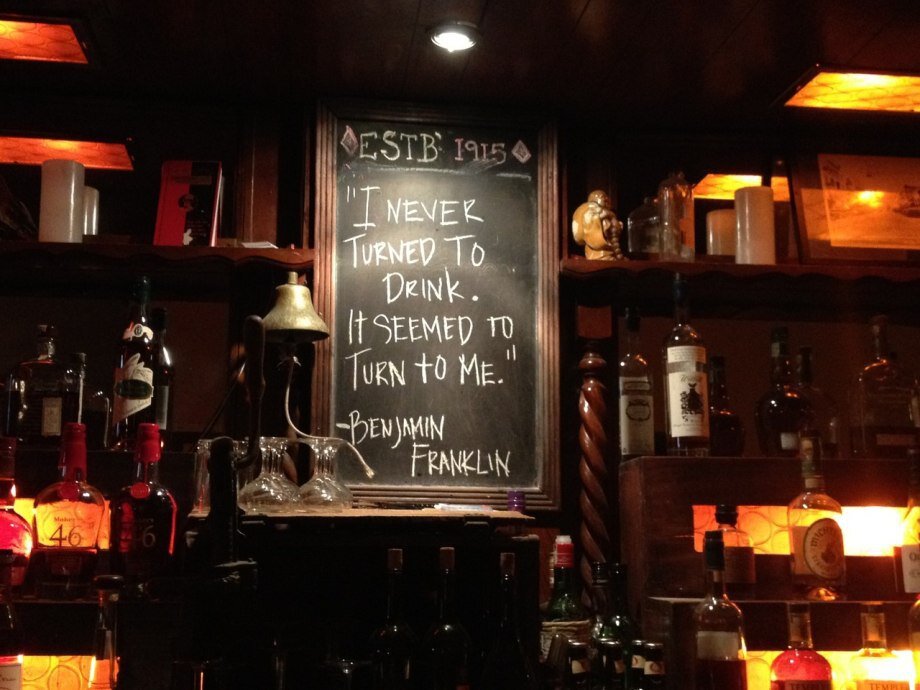 ESTB' 1915
"I NEVER
TURNED TO
DRINK.
IT SEEMED TO
TURN TO ME."
-BENJAMIN
FRANKLIN
Maker's
46
46